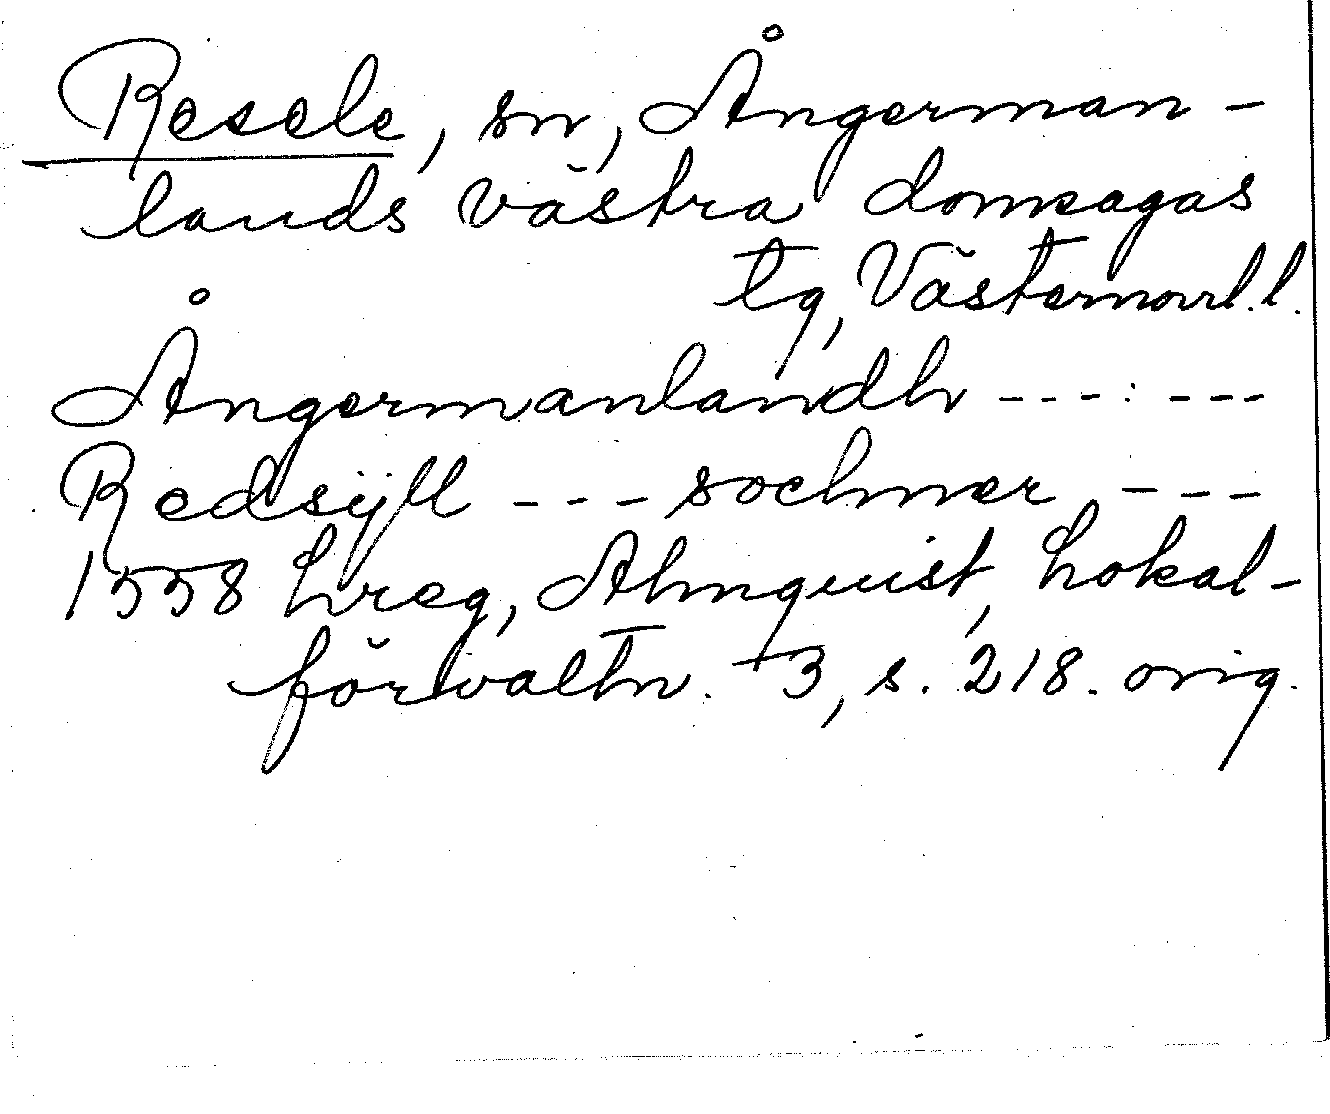 Resele, sn, Ångerman-
lands västra domsagas
tg, Västernorrl. l.
Ångermanlandh --- ---
Redsÿll --- sochner ---
1558 hreg, Almquist, Lokal-
förvaltn. 3, s. 218. orig.